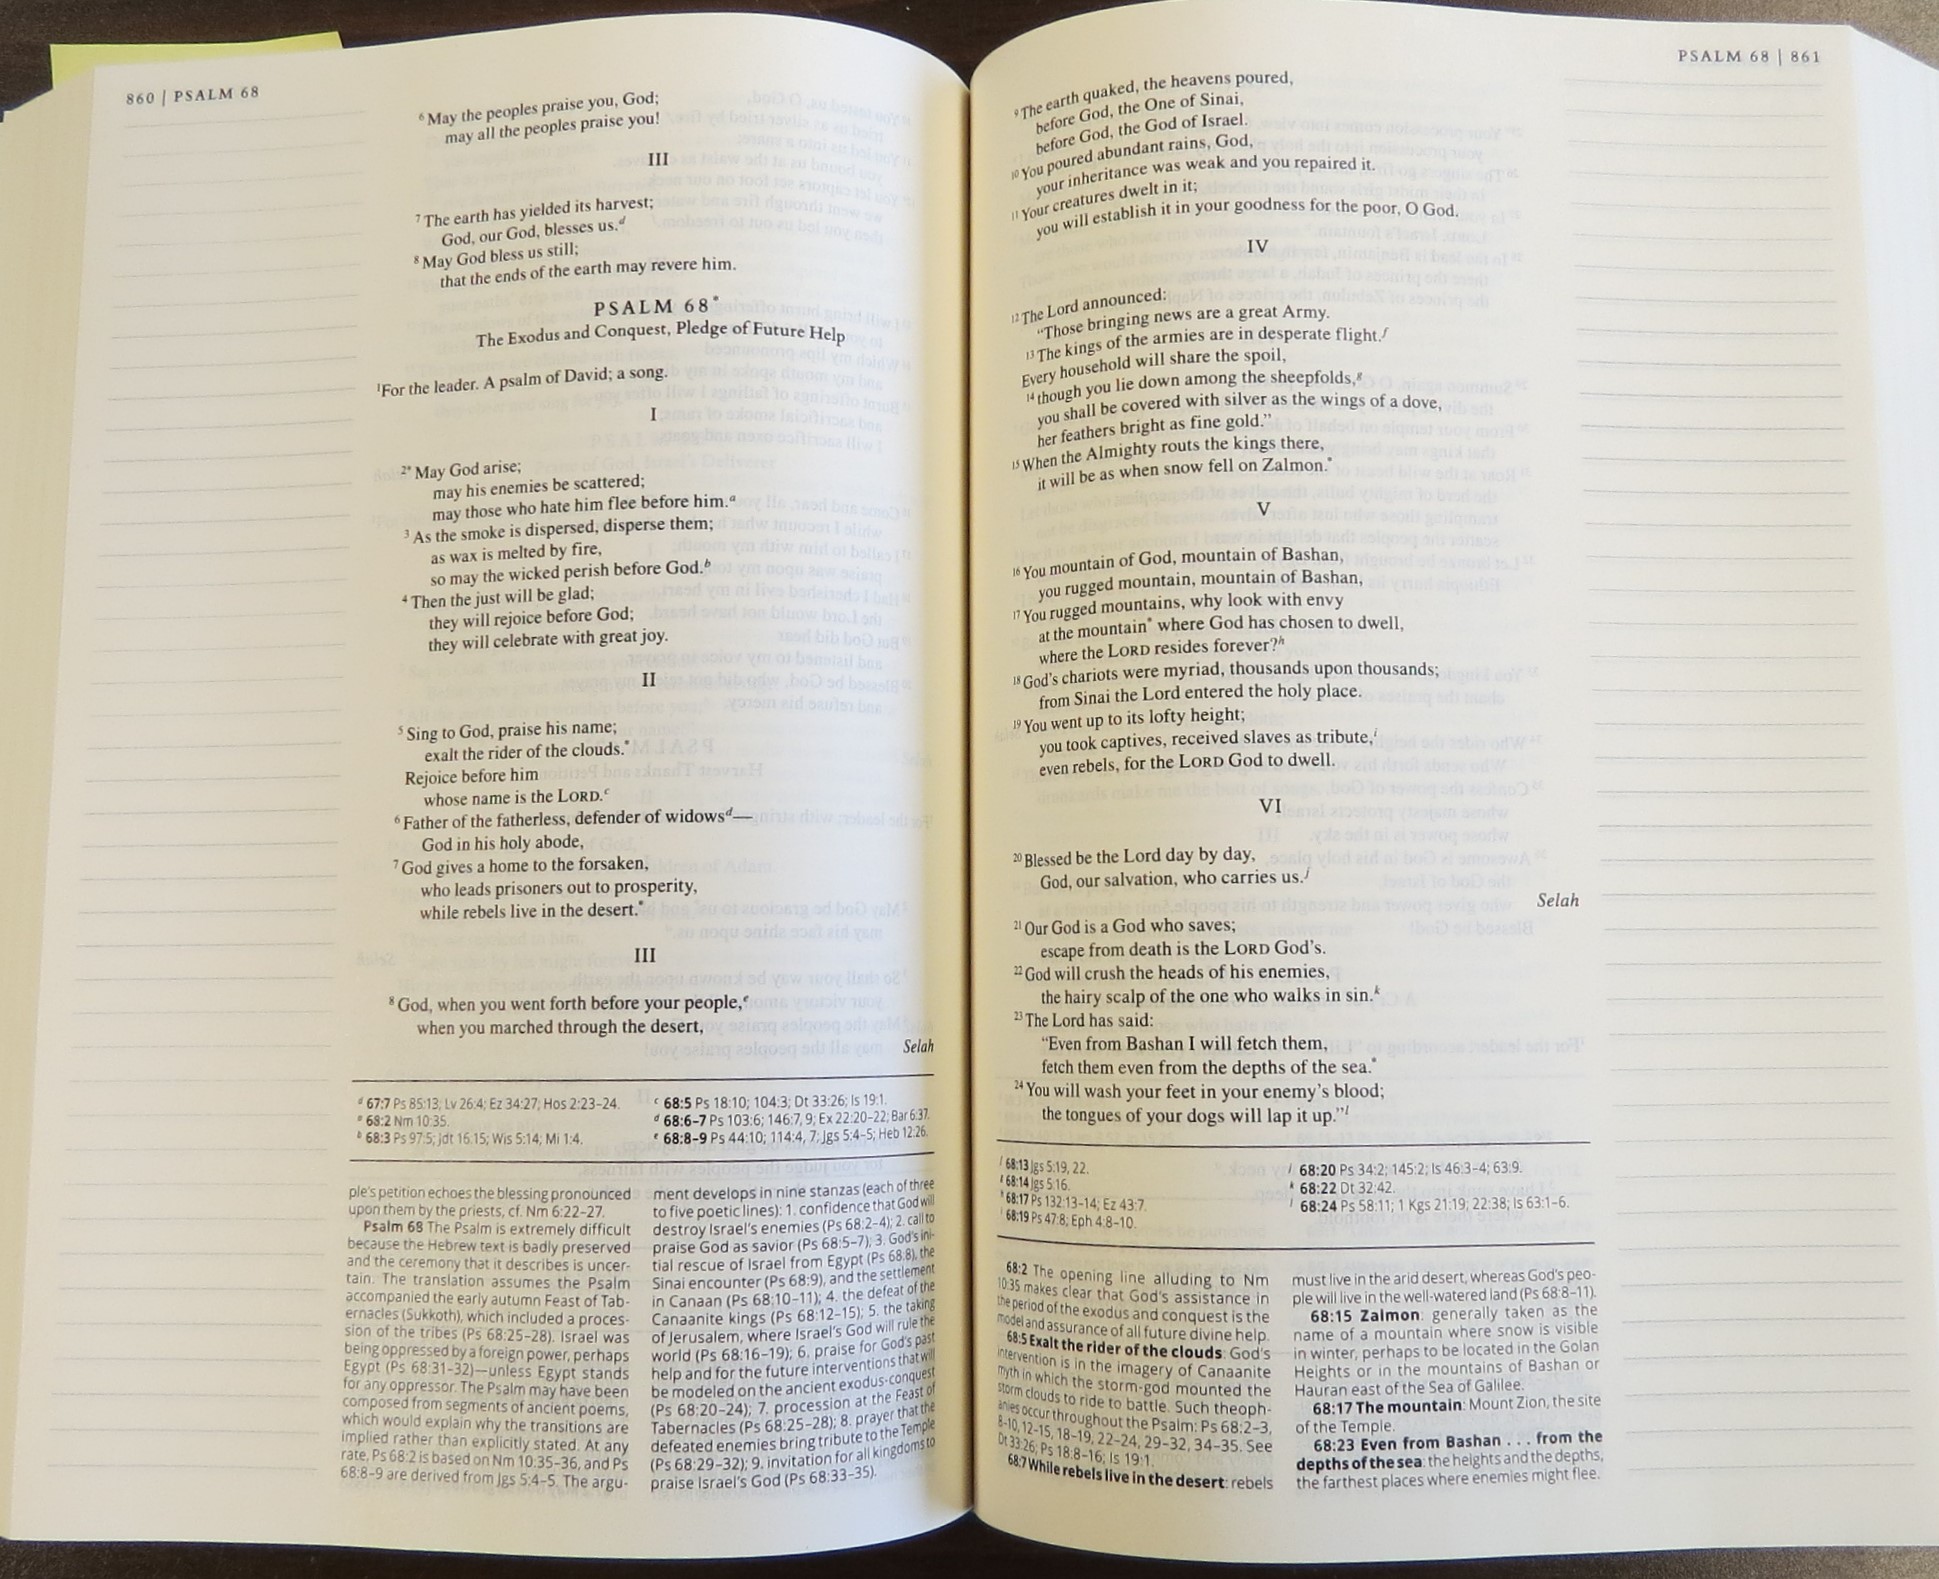 860 | PSALM 68
⁶ May the peoples praise you, God;
may all the peoples praise you!
III
⁷ The earth has yielded its harvest;
God, our God, blesses us.ᵈ
⁸ May God bless us still;
that the ends of the earth may revere him.
PSALM 68*
The Exodus and Conquest, Pledge of Future Help
¹For the leader. A psalm of David; a song.
I
²* May God arise;
may his enemies be scattered;
may those who hate him flee before him.ᵃ
³ As the smoke is dispersed, disperse them;
as wax is melted by fire,
so may the wicked perish before God.ᵇ
⁴ Then the just will be glad;
they will rejoice before God;
they will celebrate with great joy.
II
⁵ Sing to God, praise his name;
exalt the rider of the clouds.*
Rejoice before him
whose name is the LORD.ᶜ
⁶ Father of the fatherless, defender of widowsᵈ—
God in his holy abode,
⁷ God gives a home to the forsaken,
who leads prisoners out to prosperity,
while rebels live in the desert.*
III
⁸ God, when you went forth before your people,ᵉ
when you marched through the desert,
Selah
ᵈ 67:7 Ps 85:13; Lv 26:4; Ez 34:27; Hos 2:23–24.
ᵃ 68:2 Nm 10:35.
ᵇ 68:3 Ps 97:5; Jdt 16:15; Wis 5:14; Mi 1:4.
ᶜ 68:5 Ps 18:10; 104:3; Dt 33:26; Is 19:1.
ᵈ 68:6–7 Ps 103:6; 146:7, 9; Ex 22:20–22; Bar 6:37.
ᵉ 68:8–9 Ps 44:10; 114:4, 7; Jgs 5:4–5; Heb 12:26.
ple's petition echoes the blessing pronounced
upon them by the priests, cf. Nm 6:22–27.
Psalm 68 The Psalm is extremely difficult
because the Hebrew text is badly preserved
and the ceremony that it describes is uncer-
tain. The translation assumes the Psalm
accompanied the early autumn Feast of Tab-
ernacles (Sukkoth), which included a proces-
sion of the tribes (Ps 68:25–28). Israel was
being oppressed by a foreign power, perhaps
Egypt (Ps 68:31–32)—unless Egypt stands
for any oppressor. The Psalm may have been
composed from segments of ancient poems,
which would explain why the transitions are
implied rather than explicitly stated. At any
rate, Ps 68:2 is based on Nm 10:35–36, and Ps
68:8–9 are derived from Jgs 5:4–5. The argu-
ment develops in nine stanzas (each of three
to five poetic lines): 1. confidence that God will
destroy Israel's enemies (Ps 68:2–4); 2. call to
praise God as savior (Ps 68:5–7); 3. God's ini-
tial rescue of Israel from Egypt (Ps 68:8), the
Sinai encounter (Ps 68:9), and the settlement
in Canaan (Ps 68:10–11); 4. the defeat of the
Canaanite kings (Ps 68:12–15); 5. the taking
of Jerusalem, where Israel's God will rule the
world (Ps 68:16–19); 6. praise for God's past
help and for the future interventions that will
be modeled on the ancient exodus-conquest
(Ps 68:20–24); 7. procession at the Feast of
Tabernacles (Ps 68:25–28); 8. prayer that the
defeated enemies bring tribute to the Temple
(Ps 68:29–32); 9. invitation for all kingdoms to
praise Israel's God (Ps 68:33–35).
PSALM 68 | 861
⁹ The earth quaked, the heavens poured,
before God, the One of Sinai,
before God, the God of Israel.
¹⁰ You poured abundant rains, God,
your inheritance was weak and you repaired it.
¹¹ Your creatures dwelt in it;
you will establish it in your goodness for the poor, O God.
IV
¹² The Lord announced:
"Those bringing news are a great Army.
¹³ The kings of the armies are in desperate flight.ᶠ
Every household will share the spoil,
¹⁴ though you lie down among the sheepfolds,ᵍ
you shall be covered with silver as the wings of a dove,
her feathers bright as fine gold."
¹⁵ When the Almighty routs the kings there,
it will be as when snow fell on Zalmon.*
V
¹⁶ You mountain of God, mountain of Bashan,
you rugged mountain, mountain of Bashan,
¹⁷ You rugged mountains, why look with envy
at the mountain* where God has chosen to dwell,
where the LORD resides forever?ʰ
¹⁸ God's chariots were myriad, thousands upon thousands;
from Sinai the Lord entered the holy place.
¹⁹ You went up to its lofty height;
you took captives, received slaves as tribute,ⁱ
even rebels, for the LORD God to dwell.
VI
²⁰ Blessed be the Lord day by day,
God, our salvation, who carries us.ʲ
Selah
²¹ Our God is a God who saves;
escape from death is the LORD God's.
²² God will crush the heads of his enemies,
the hairy scalp of the one who walks in sin.ᵏ
²³ The Lord has said:
"Even from Bashan I will fetch them,
fetch them even from the depths of the sea.*
²⁴ You will wash your feet in your enemy's blood;
the tongues of your dogs will lap it up."ˡ
ᶠ 68:13 Jgs 5:19, 22.
ᵍ 68:14 Jgs 5:16.
ʰ 68:17 Ps 132:13–14; Ez 43:7.
ⁱ 68:19 Ps 47:8; Eph 4:8–10.
ʲ 68:20 Ps 34:2; 145:2; Is 46:3–4; 63:9.
ᵏ 68:22 Dt 32:42.
ˡ 68:24 Ps 58:11; 1 Kgs 21:19; 22:38; Is 63:1–6.
68:2 The opening line alluding to Nm
10:35 makes clear that God's assistance in
the period of the exodus and conquest is the
model and assurance of all future divine help.
68:5 Exalt the rider of the clouds: God's
intervention is in the imagery of Canaanite
myth in which the storm-god mounted the
storm clouds to ride to battle. Such theoph-
anies occur throughout the Psalm: Ps 68:2–3,
8–10, 12–15, 18–19, 22–24, 29–32, 34–35. See
Dt 33:26; Ps 18:8–16; Is 19:1.
68:7 While rebels live in the desert: rebels
must live in the arid desert, whereas God's peo-
ple will live in the well-watered land (Ps 68:8–11).
68:15 Zalmon: generally taken as the
name of a mountain where snow is visible
in winter, perhaps to be located in the Golan
Heights or in the mountains of Bashan or
Hauran east of the Sea of Galilee.
68:17 The mountain: Mount Zion, the site
of the Temple.
68:23 Even from Bashan . . . from the
depths of the sea: the heights and the depths,
the farthest places where enemies might flee.